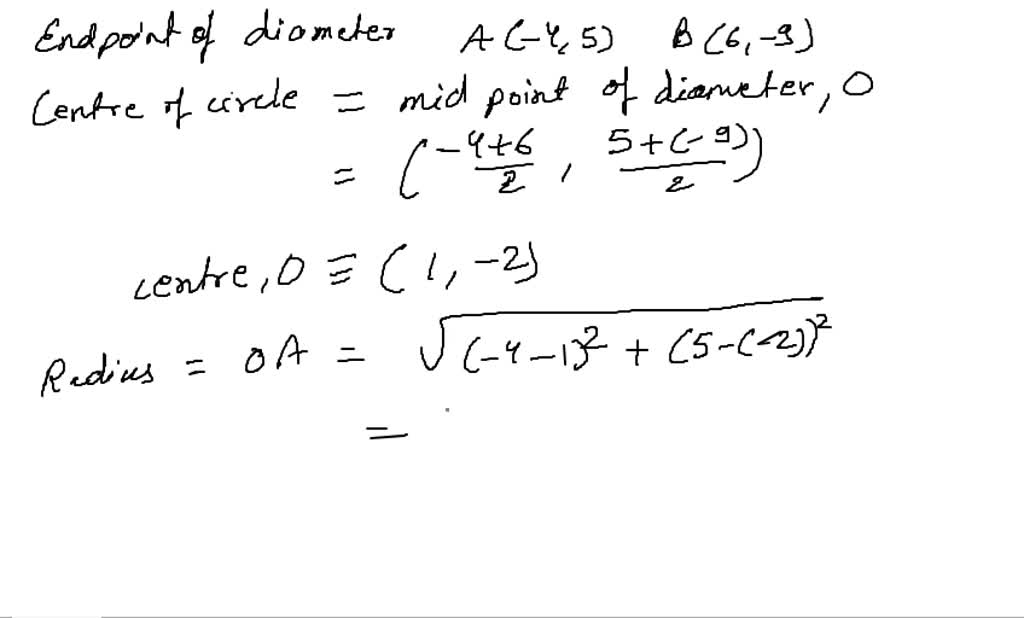 Endpoint of diameter A(-4, 5) B(6, -9)
Centre of circle = mid point of diameter, O
= (-4+6/2, 5+(-9)/2)
centre, O ≡ (1, -2)
Radius = OA = √(-4-1)² + (5-(-2))²
=